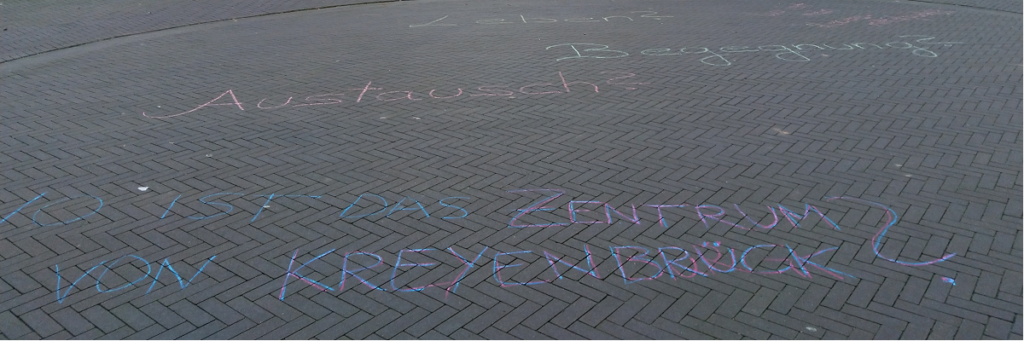 Leben?
Begegnung?
Austausch?
WO IST DAS ZENTRUM
VON KREYENBRÜCK?